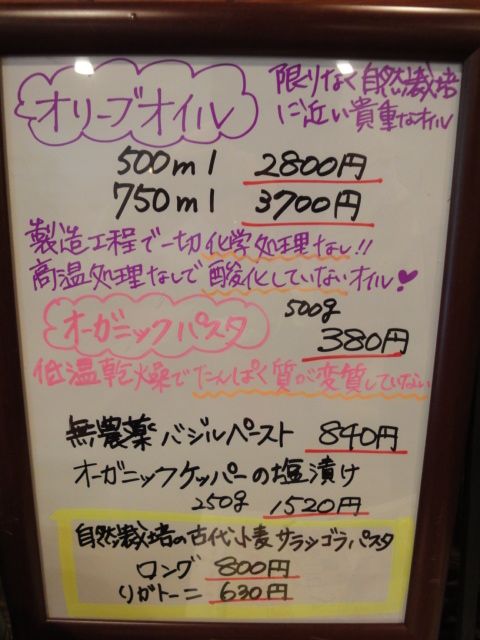 オリーブオイル
限りなく自然栽培
に近い貴重なオイル
500ml 2800円
750ml 3700円
製造工程で一切化学処理なし!!
高温処理なしで酸化していないオイル♥
オーガニックパスタ
500g
380円
低温乾燥でたんぱく質が変質していない
無農薬バジルペースト 840円
オーガニックケッパーの塩漬け
250g 1520円
自然栽培の古代小麦サラゴラパスタ
ロング 800円
リガトーニ 630円